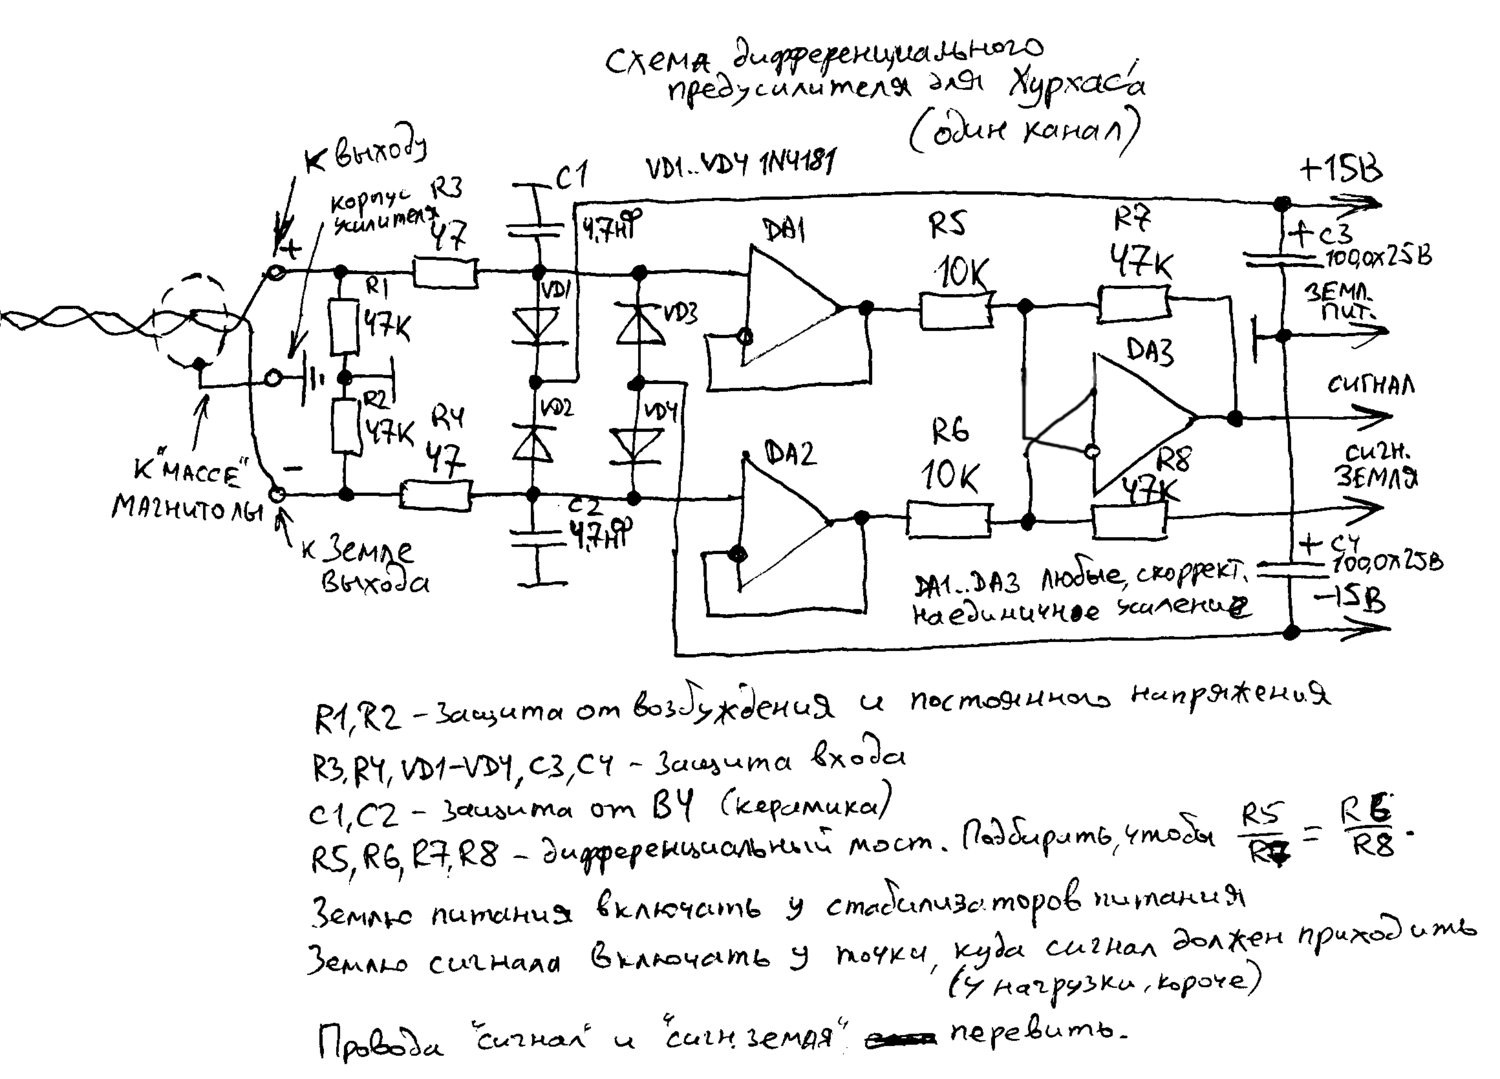 Схема дифференциального
предусилителя для Хурхас'а
(один канал)
К выходу
корпус
усилителя
R3
47
C1
4,7нФ
VD1..VD4 1N4181
+15В
+ C3
100,0x25В
ЗЕМЛ.
ПИТ.
DA1
R5
10К
R7
47К
+
R1
47К
VD1
VD3
DA3
СИГНАЛ
R2
47К
VD2
VD4
R4
47
DA2
R6
10К
R8
47К
СИГН.
ЗЕМЛЯ
К "МАССЕ"
МАГНИТОЛЫ
−
C2
4,7нФ
к Земле
выхода
+ C4
100,0x25В
−15В
DA1..DA3 любые, скоррект.
на единичное усиление
R1, R2 – Защита от возбуждения и постоянного напряжения
R3, R4, VD1–VD4, C3, C4 – Защита входа
C1, C2 – Защита от ВЧ (керамика)
R5, R6, R7, R8 – дифференциальный мост. Подбирать, чтобы R5/R7 = R6/R8.
Землю питания включать у стабилизаторов питания
Землю сигнала включать у точки, куда сигнал должен приходить
(у нагрузки, короче)
Провода "сигнал" и "сигн. земля" перевить.